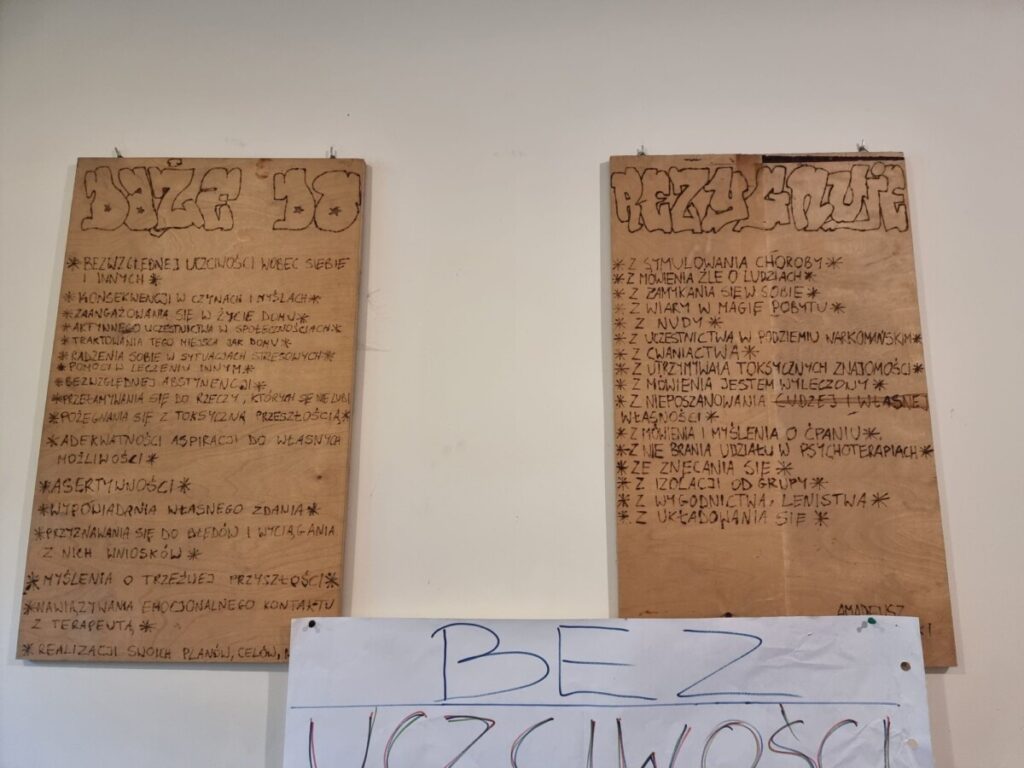 DĄŻĘ DO
* BEZWZGLĘDNEJ UCZCIWOŚCI WOBEC SIEBIE
I INNYCH *
* KONSEKWENCJI W CZYNACH I MYŚLACH *
* ZAANGAŻOWANIA SIĘ W ŻYCIE DOMU *
* AKTYWNEGO UCZESTNICTWA W SPOŁECZNOŚCIACH *
* TRAKTOWANIA TEGO MIEJSCA JAK DOMU *
* RADZENIA SOBIE W SYTUACJACH STRESOWYCH *
* POMOCY W LECZENIU INNYM *
* BEZWZGLĘDNEJ ABSTYNENCJI *
* PRZEŁAMYWANIA SIĘ DO RZECZY, KTÓRYCH SIĘ NIE LUBI
* POŻEGNANIA SIĘ Z TOKSYCZNĄ PRZESZŁOŚCIĄ *
* ADEKWATNOŚCI ASPIRACJI DO WŁASNYCH
MOŻLIWOŚCI *
* ASERTYWNOŚCI *
* WYPOWIADANIA WŁASNEGO ZDANIA *
* PRZYZNAWANIA SIĘ DO BŁĘDÓW I WYCIĄGANIA
Z NICH WNIOSKÓW *
* MYŚLENIA O TRZEŹWEJ PRZYSZŁOŚCI *
* NAWIĄZYWANIA EMOCJONALNEGO KONTAKTU
Z TERAPEUTĄ *
* REALIZACJI SWOICH PLANÓW, CELÓW,
REZYGNUJĘ
* Z SYMULOWANIA CHOROBY *
* Z MÓWIENIA ŹLE O LUDZIACH *
* Z ZAMYKANIA SIĘ W SOBIE *
* Z WIARY W MAGIĘ POBYTU *
* Z NUDY *
* Z UCZESTNICTWA W PODZIEMIU NARKOMAŃSKIM *
* Z CWANIACTWA *
* Z UTRZYMYWAIA TOKSYCZNYCH ZNAJOMOŚCI *
* Z MÓWIENIA JESTEM WYLECZONY *
* Z NIEPOSZANOWANIA CUDZEJ I WŁASNEJ
WŁASNOŚCI *
* Z MÓWIENIA I MYŚLENIA O ĆPANIU *
* Z NIE BRANIA UDZIAŁU W PSYCHOTERAPIACH *
* ZE ZNĘCANIA SIĘ *
* Z IZOLACJI OD GRUPY *
* Z WYGODNICTWA, LENISTWA *
* Z UKŁADOWANIA SIĘ *
AMADEUSZ
BEZ
UCZCIWOŚCI